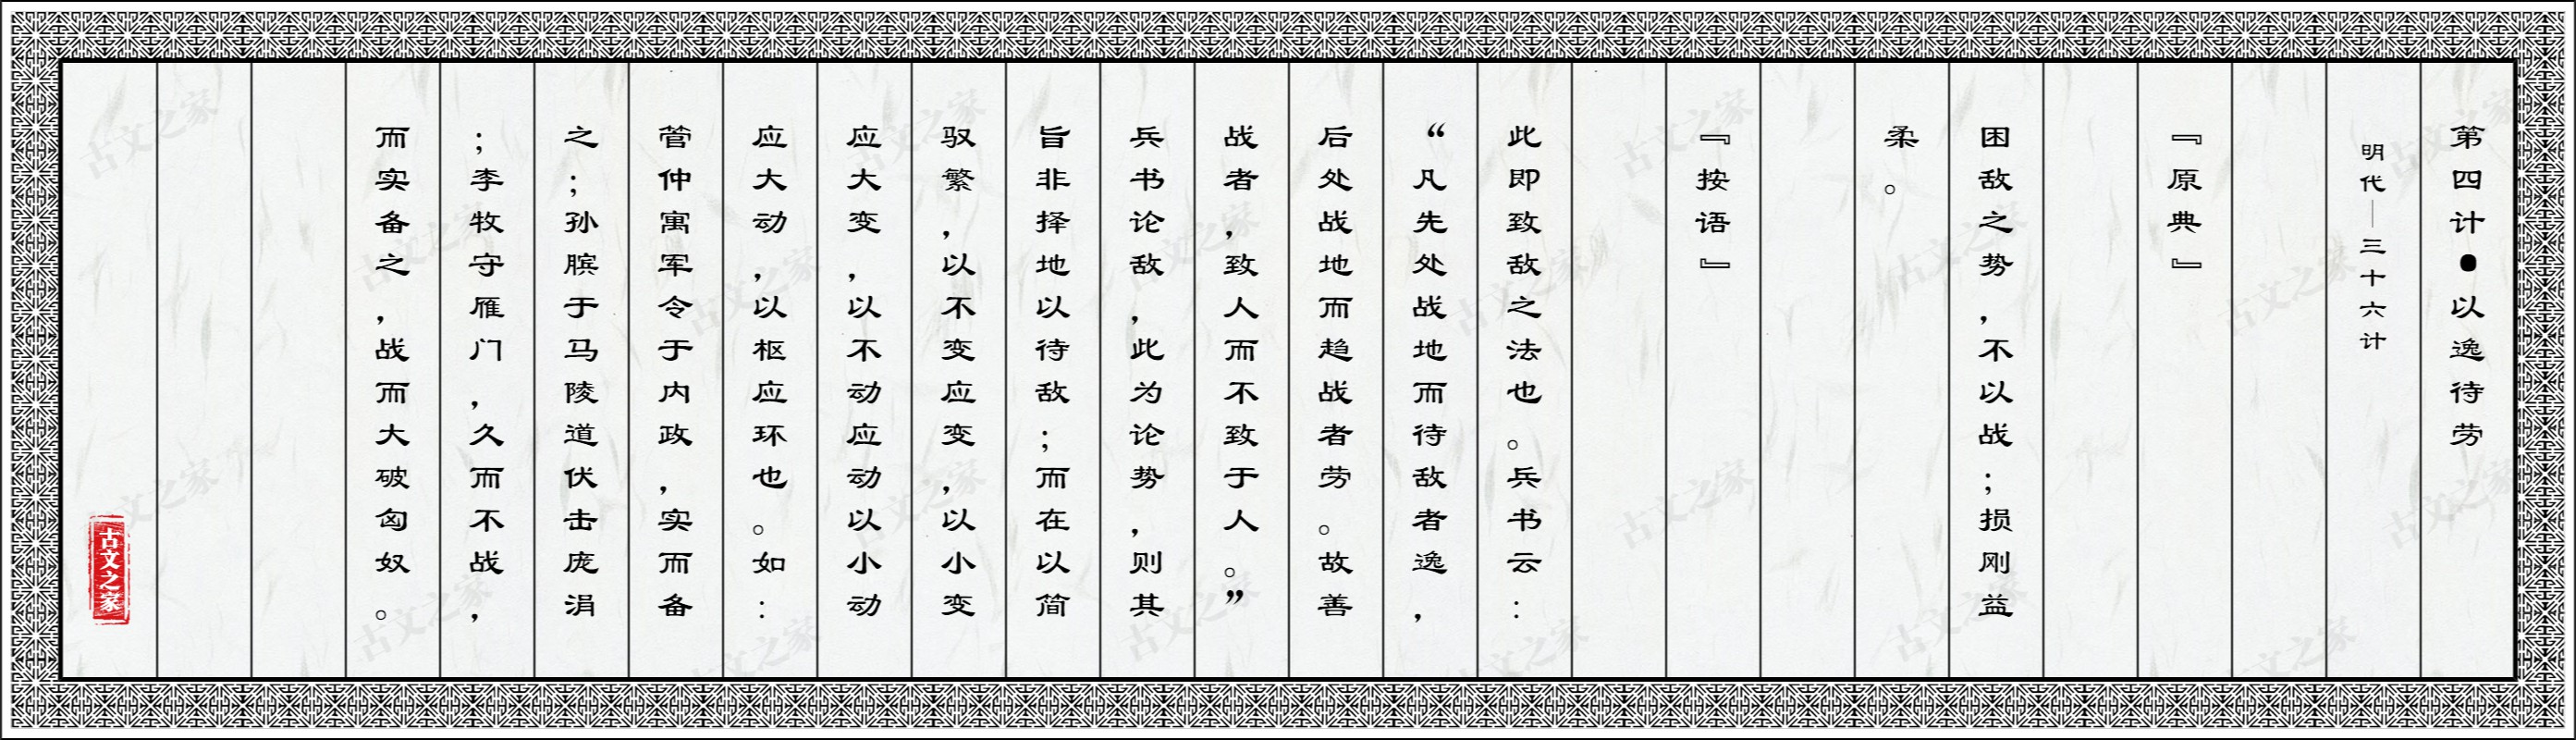 第四计●以逸待劳
明代——三十六计
『原典』
困敌之势，不以战；损刚益
柔。
『按语』
此即致敌之法也。兵书云：
“凡先处战地而待敌者逸，
后处战地而趋战者劳。故善
战者，致人而不致于人。”
兵书论敌，此为论势，则其
旨非择地以待敌；而在以简
驭繁，以不变应变，以小变
应大变，以不动应动以小动
应大动，以枢应环也。如：
管仲寓军令于内政，实而备
之；孙膑于马陵道伏击庞涓
；李牧守雁门，久而不战，
而实备之，战而大破匈奴。
古文之家